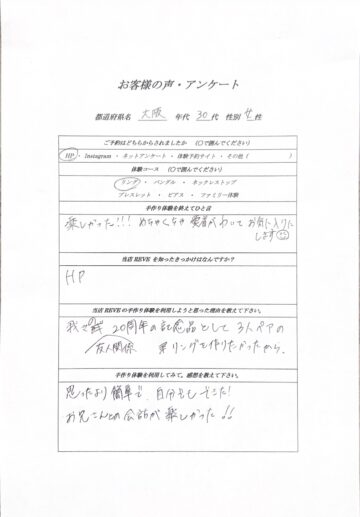 お客様の声・アンケート
都道府県名 大阪 年代 30代 性別 女性
ご予約はどちらからされましたか（〇で囲んでください）
HP・Instagram・ネットアンケート・体験予約サイト・その他（ ）
体験コース（〇で囲んでください）
リング ・ バングル ・ ネックレストップ
ブレスレット ・ ピアス ・ ファミリー体験
手作り体験を終えてひと言
楽しかった!!! めちゃくちゃ 愛着がわいて お気に入り
します
当店 REVE を知ったきっかけはなんですか？
HP
当店 REVE の手作り体験を利用しようと思った理由を教えて下さい。
20周年の記念品として 3人ペアの
友人関係 リングを作りたかったから。
手作り体験を利用してみて。感想を教えて下さい。
思ったより簡単で、自分でもできた!
お兄さんとの会話が楽しかった!!